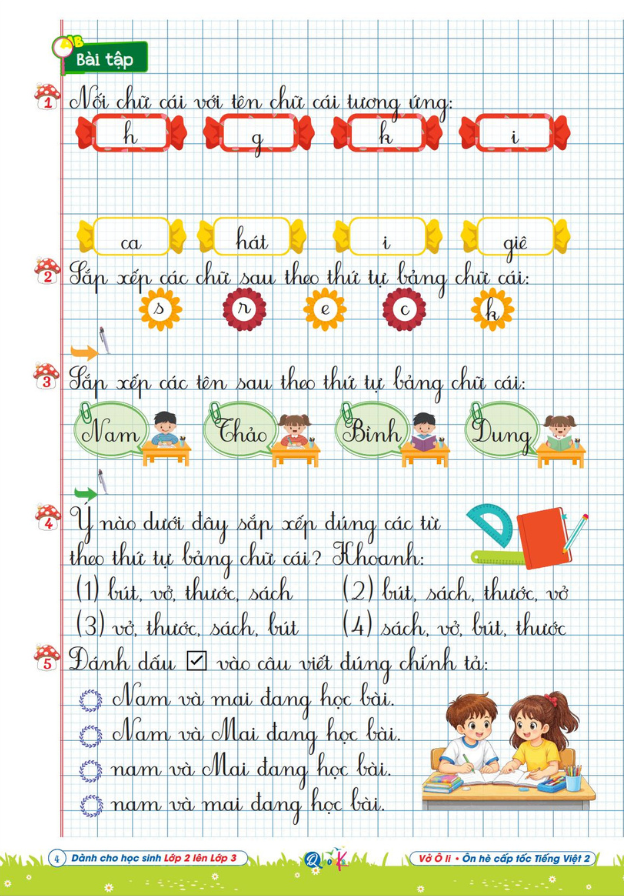 Bài tập
1 Nối chữ cái với tên chữ cái tương ứng:
h g k i
ca hát i giê
2 Sắp xếp các chữ sau theo thứ tự bảng chữ cái:
s r e c k
3 Sắp xếp các tên sau theo thứ tự bảng chữ cái:
Nam Thảo Bình Dung
4 Ý nào dưới đây sắp xếp đúng các từ
theo thứ tự bảng chữ cái? Khoanh:
(1) bút, vở, thước, sách (2) bút, sách, thước, vở
(3) vở, thước, sách, bút (4) sách, vở, bút, thước
5 Đánh dấu ☑ vào câu viết đúng chính tả:
Nam và mai đang học bài.
Nam và Mai đang học bài.
nam và Mai đang học bài.
nam và mai đang học bài.
4 Dành cho học sinh Lớp 2 lên Lớp 3 Vở Ô li • Ôn hè cấp tốc Tiếng Việt 2